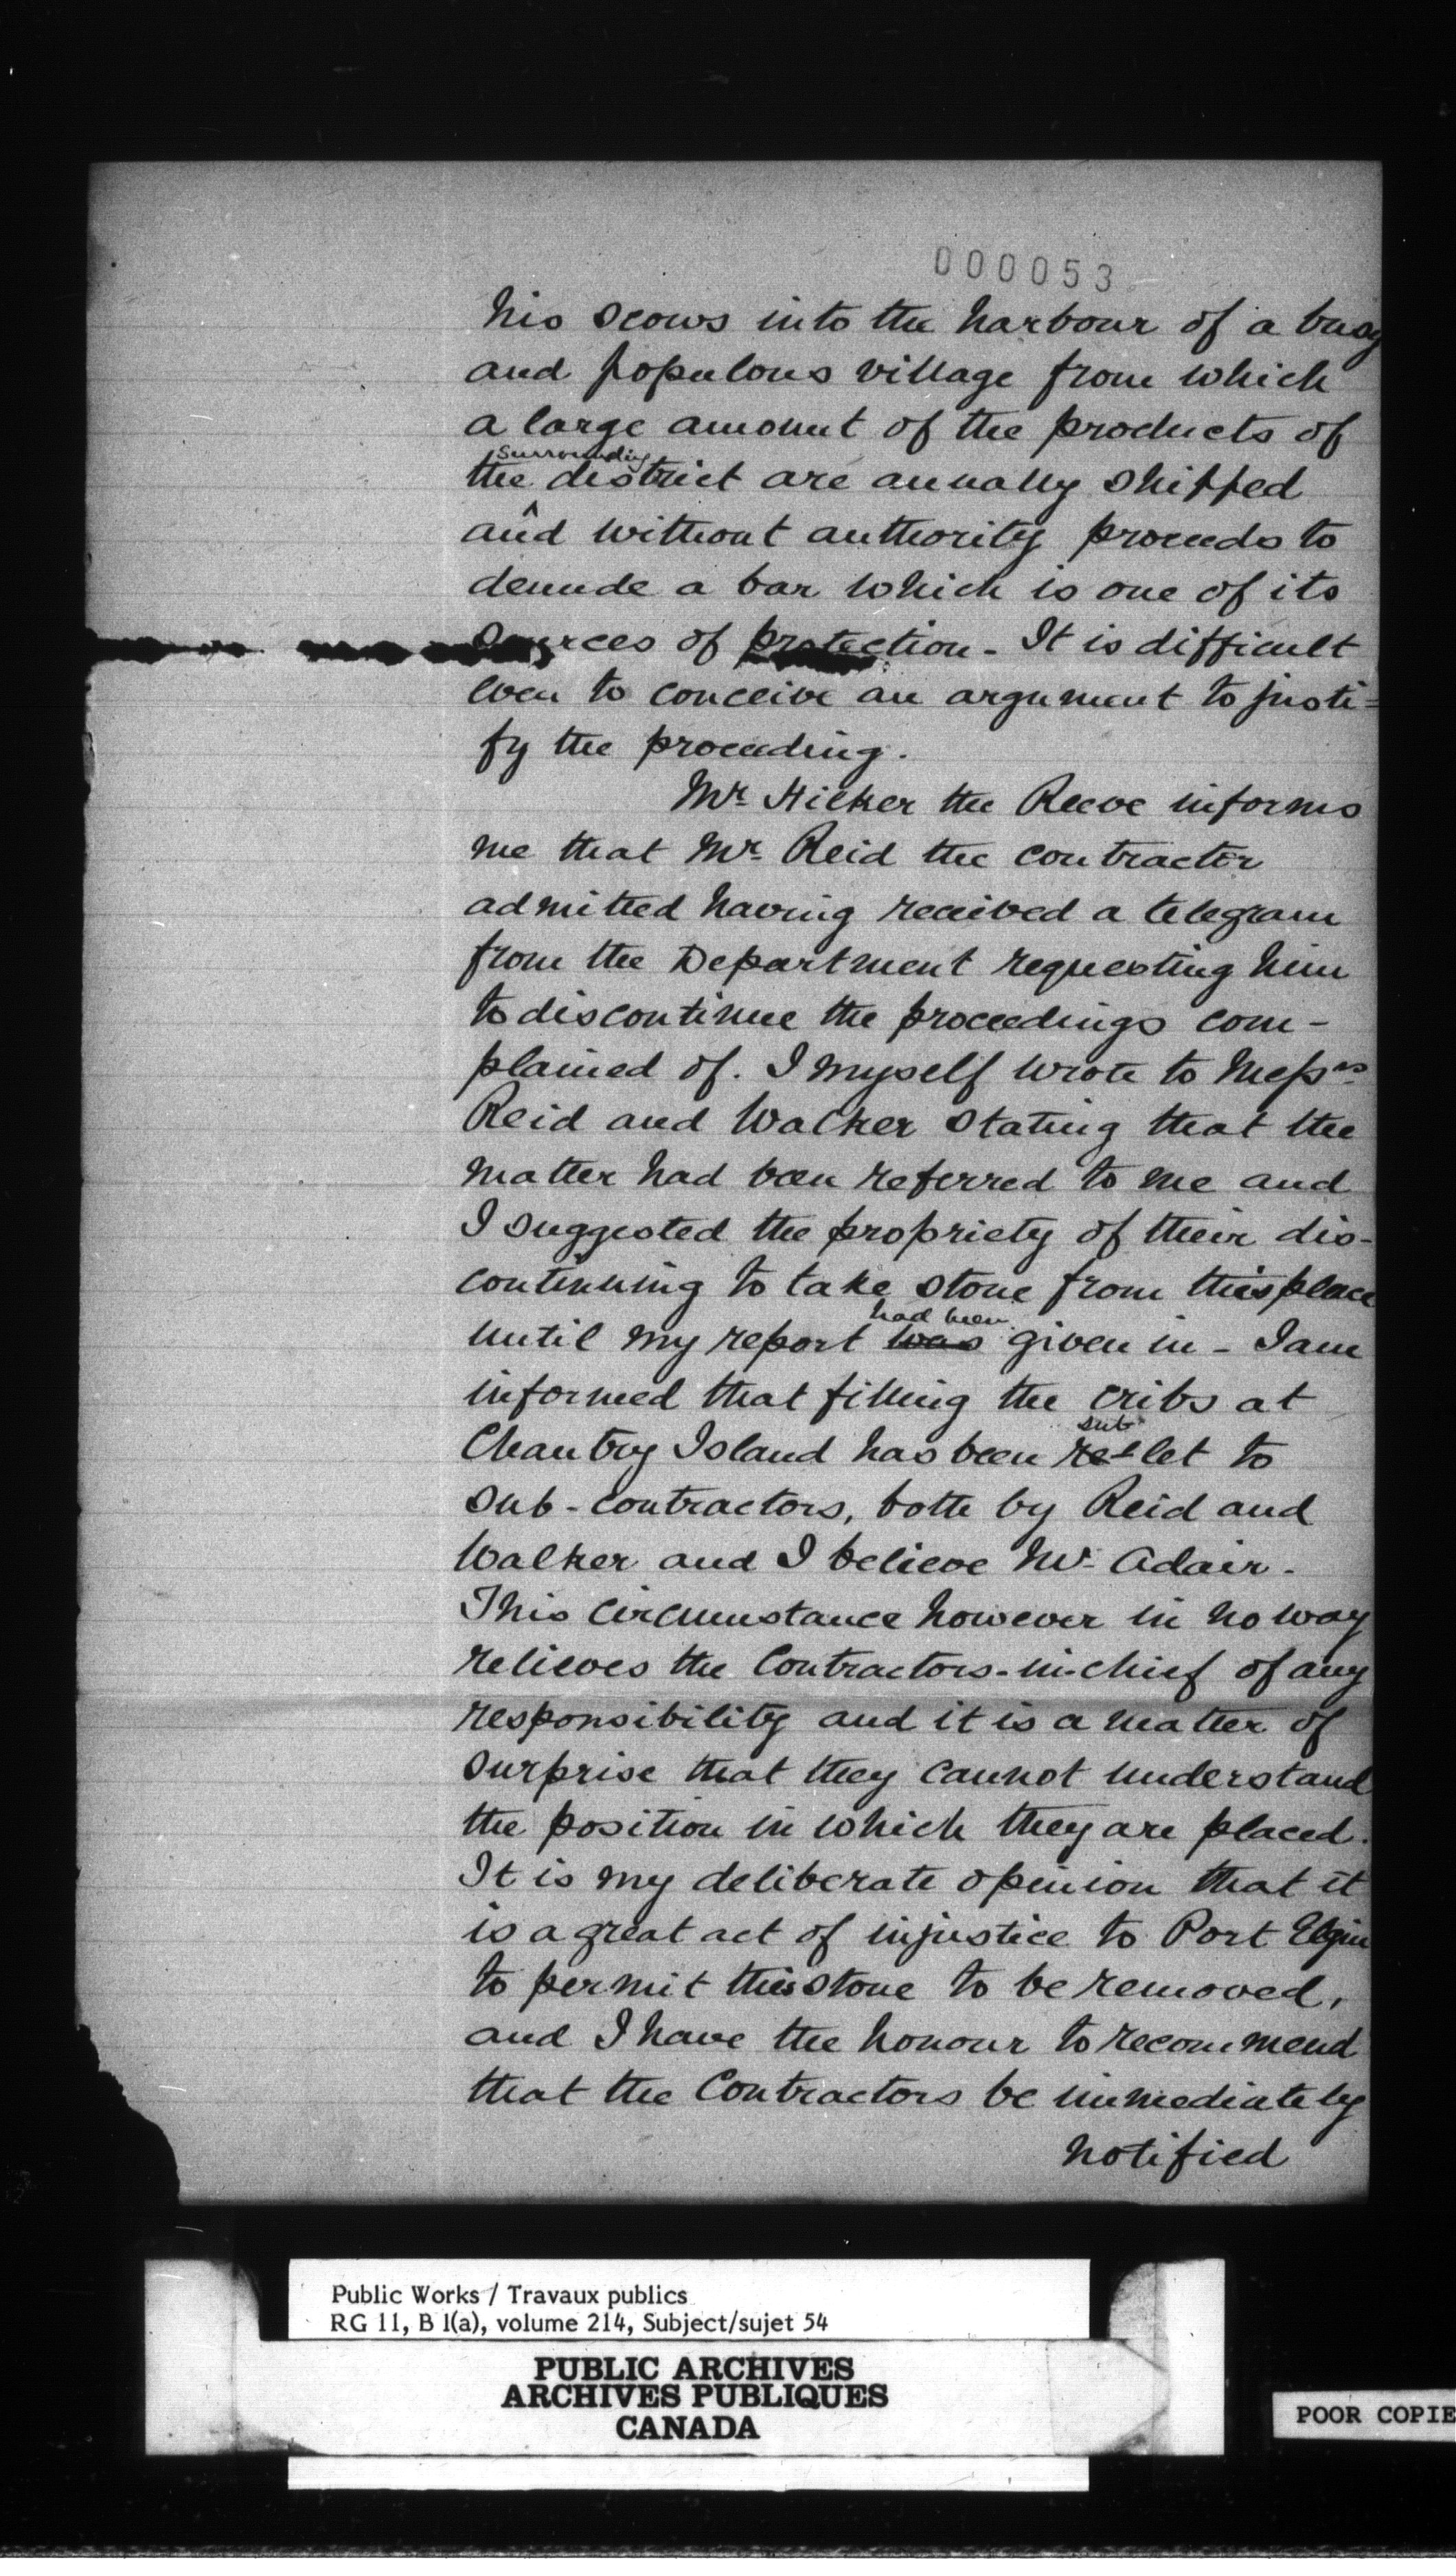 000053
his scows into the harbour of a busy
and populous village from which
a large amount of the products of
surrounding
the district are anually shipped
and without authority proceeds to
denude a bar which is one of its
sources of protection - It is difficult
even to conceive an argument to justi=
fy the proceeding.
Mr. Hilker the Reeve informs
me that Mr. Reid the contractor
admitted having received a telegram
from the Department requesting him
to discontinue the proceedings com-
plained of. I myself wrote to Messrs.
Reid and Walker stating that the
matter had been referred to me and
I suggested the propriety of their dis-
continuing to take stone from this place
had been
until my report was given in - I am
informed that filling the cribs at
sub
Chantry Island has been re-let to
sub-contractors, both by Reid and
Walker and I believe Mr. Adair.
This circumstance however in no way
relieves the Contractors-in-chief of any
responsibility and it is a matter of
surprise that they cannot understand
the position in which they are placed.
It is my deliberate opinion that it
is a great act of injustice to Port Elgin
to permit this stone to be removed,
and I have the honour to recommend
that the Contractors be immediately
notified
Public Works / Travaux publics
RG 11, B 1(a), volume 214, Subject/sujet 54
PUBLIC ARCHIVES
ARCHIVES PUBLIQUES
CANADA
POOR COPIE